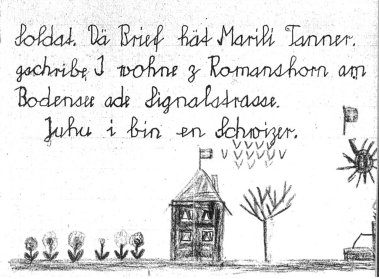 Soldat. Dä Brief hät Marili Tanner.
gschribe, I wohne z Romanshorn am
Bodensee ade Signalstrasse.
Juhu i bin en Schwizer.